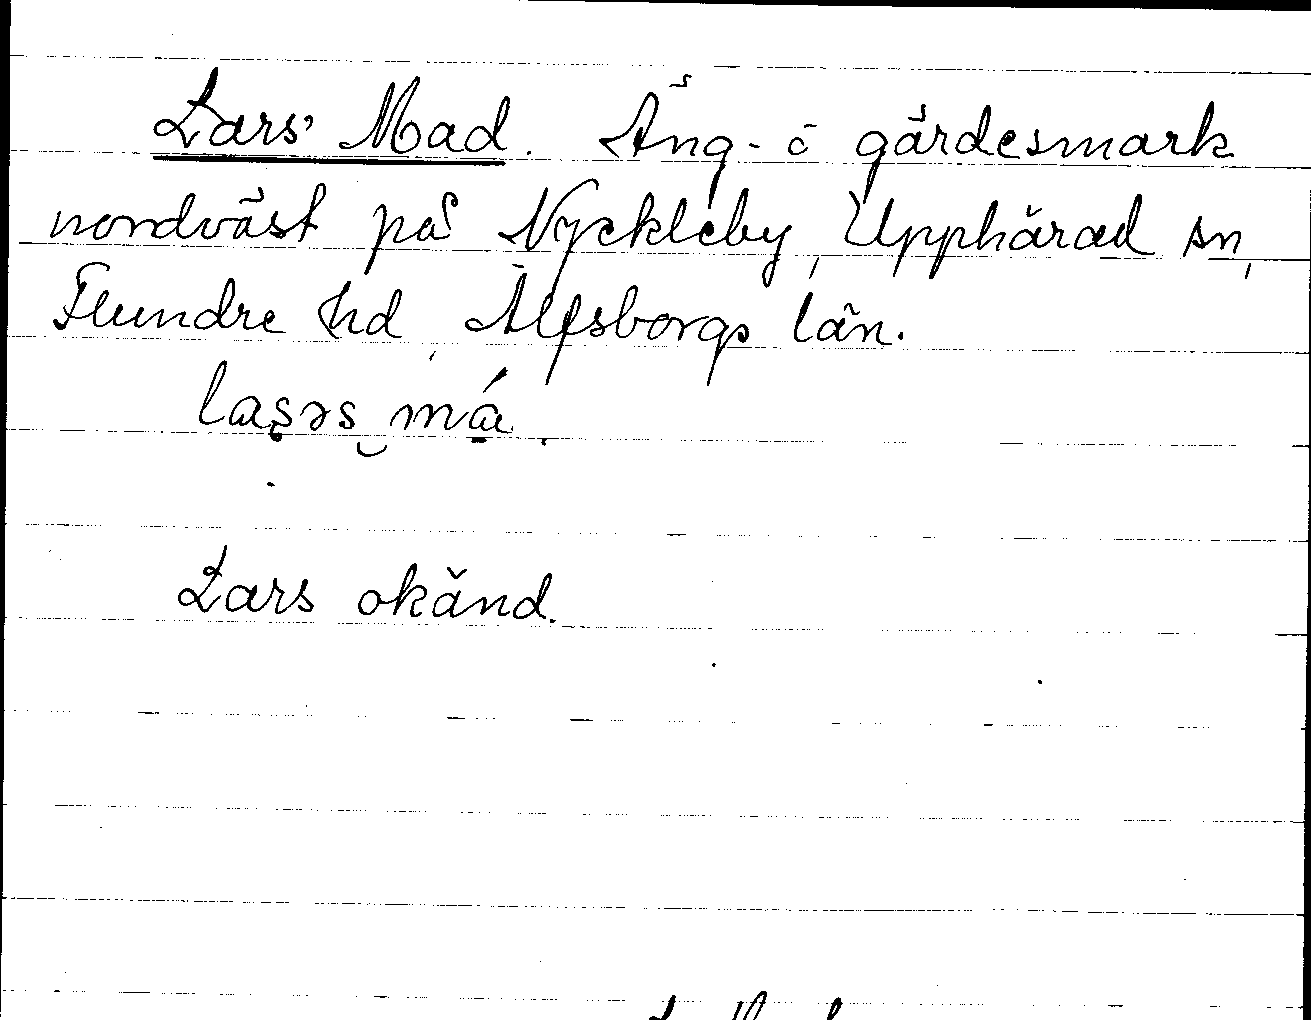 Lars' Mad. Äng- o gärdesmark
nordväst på Nyckleby, Upphärad sn,
Flundre hd, Älfsborgs län.
lasəs má.
Lars okänd.